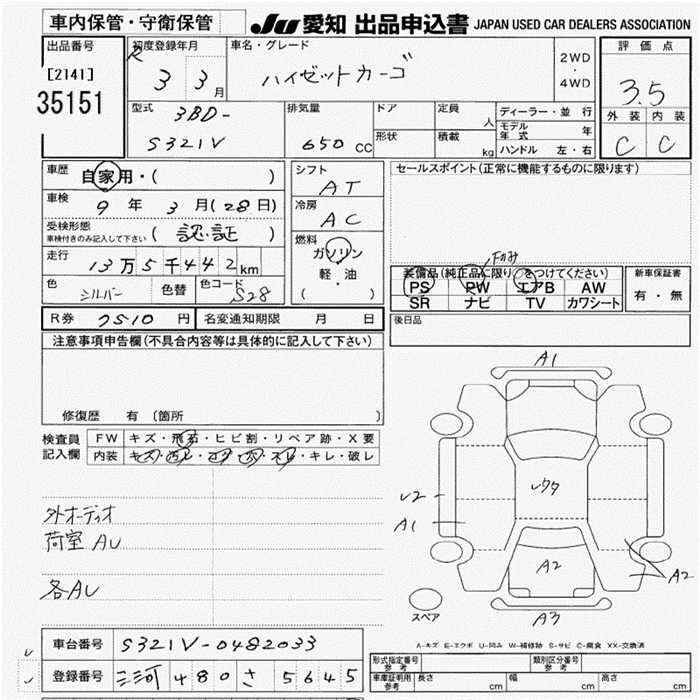 車内保管・守衛保管
JU 愛知 出品申込書 JAPAN USED CAR DEALERS ASSOCIATION
出品番号
[2141]
35151
初度登録年月
R 3 3月
車名・グレード
ハイゼットカーゴ
2WD
4WD
評価点
3.5
外装 内装
C C
型式 3BD-
S321V
排気量
650 CC
ドア
形状
定員 人
積載 kg
ディーラー・並行
モデル年式 年
ハンドル 左・右
車歴 自家用・( )
車検 9年 3月(28日)
受検形態
車検付きのみ記入して下さい (認・証)
走行 13万5千442km
色 シルバー 色替 色コード S28
シフト
AT
冷房
AC
燃料
ガソリン
軽・油
( )
セールスポイント(正常に機能するものに限ります)
装備品(純正品に限り○をつけてください)
PS PW エアB AW
SR ナビ TV カワシート
新車保証書
有・無
R券 7510円 名変通知期限 月 日
後日品
注意事項申告欄(不具合内容等は具体的に記入して下さい)
修復歴 有 (箇所 )
検査員記入欄
FW キズ・飛石・ヒビ割・リペア跡・X要
内装 キズ・汚レ・コゲ・穴・スレ・キレ・破レ
外オーディオ
荷室AU
各AU
A1
U2
A1
レワタ
A2
A2
A3
スペア
A-キズ E-エクボ U-凹み W-補修跡 S-サビ C-腐食 XX-交換済
車台番号 S321V-0482033
登録番号 三河 480 さ 5645
形式指定番号 参考
類別区分番号 参考
車庫証明用 参考 長さ cm 幅 cm 高さ cm